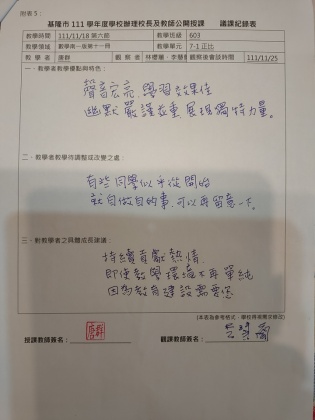 附表 5：
基隆市 111 學年度學校辦理校長及教師公開授課　議課紀錄表
教學時間　111/11/18 第六節　教學班級　603
教學領域　數學南一版第十一冊　教學單元　7-1 正比
教 學 者　唐群　觀 察 者　觀察後會談時間　111/11/25
一、教學者教學優點與特色：
聲音宏亮，學習效果佳
幽默嚴謹並重展現獨特力量。
二、教學者教學待調整或改變之處：
有些同學似乎從開始
就自做自的事，可以再留意一下。
三、對教學者之具體成長建議：
持續貢獻熱情
即使教學環境不再單純
因為教育建設需要您
(本表為參考格式，學校得視需求修改)
授課教師簽名：　觀課教師簽名：